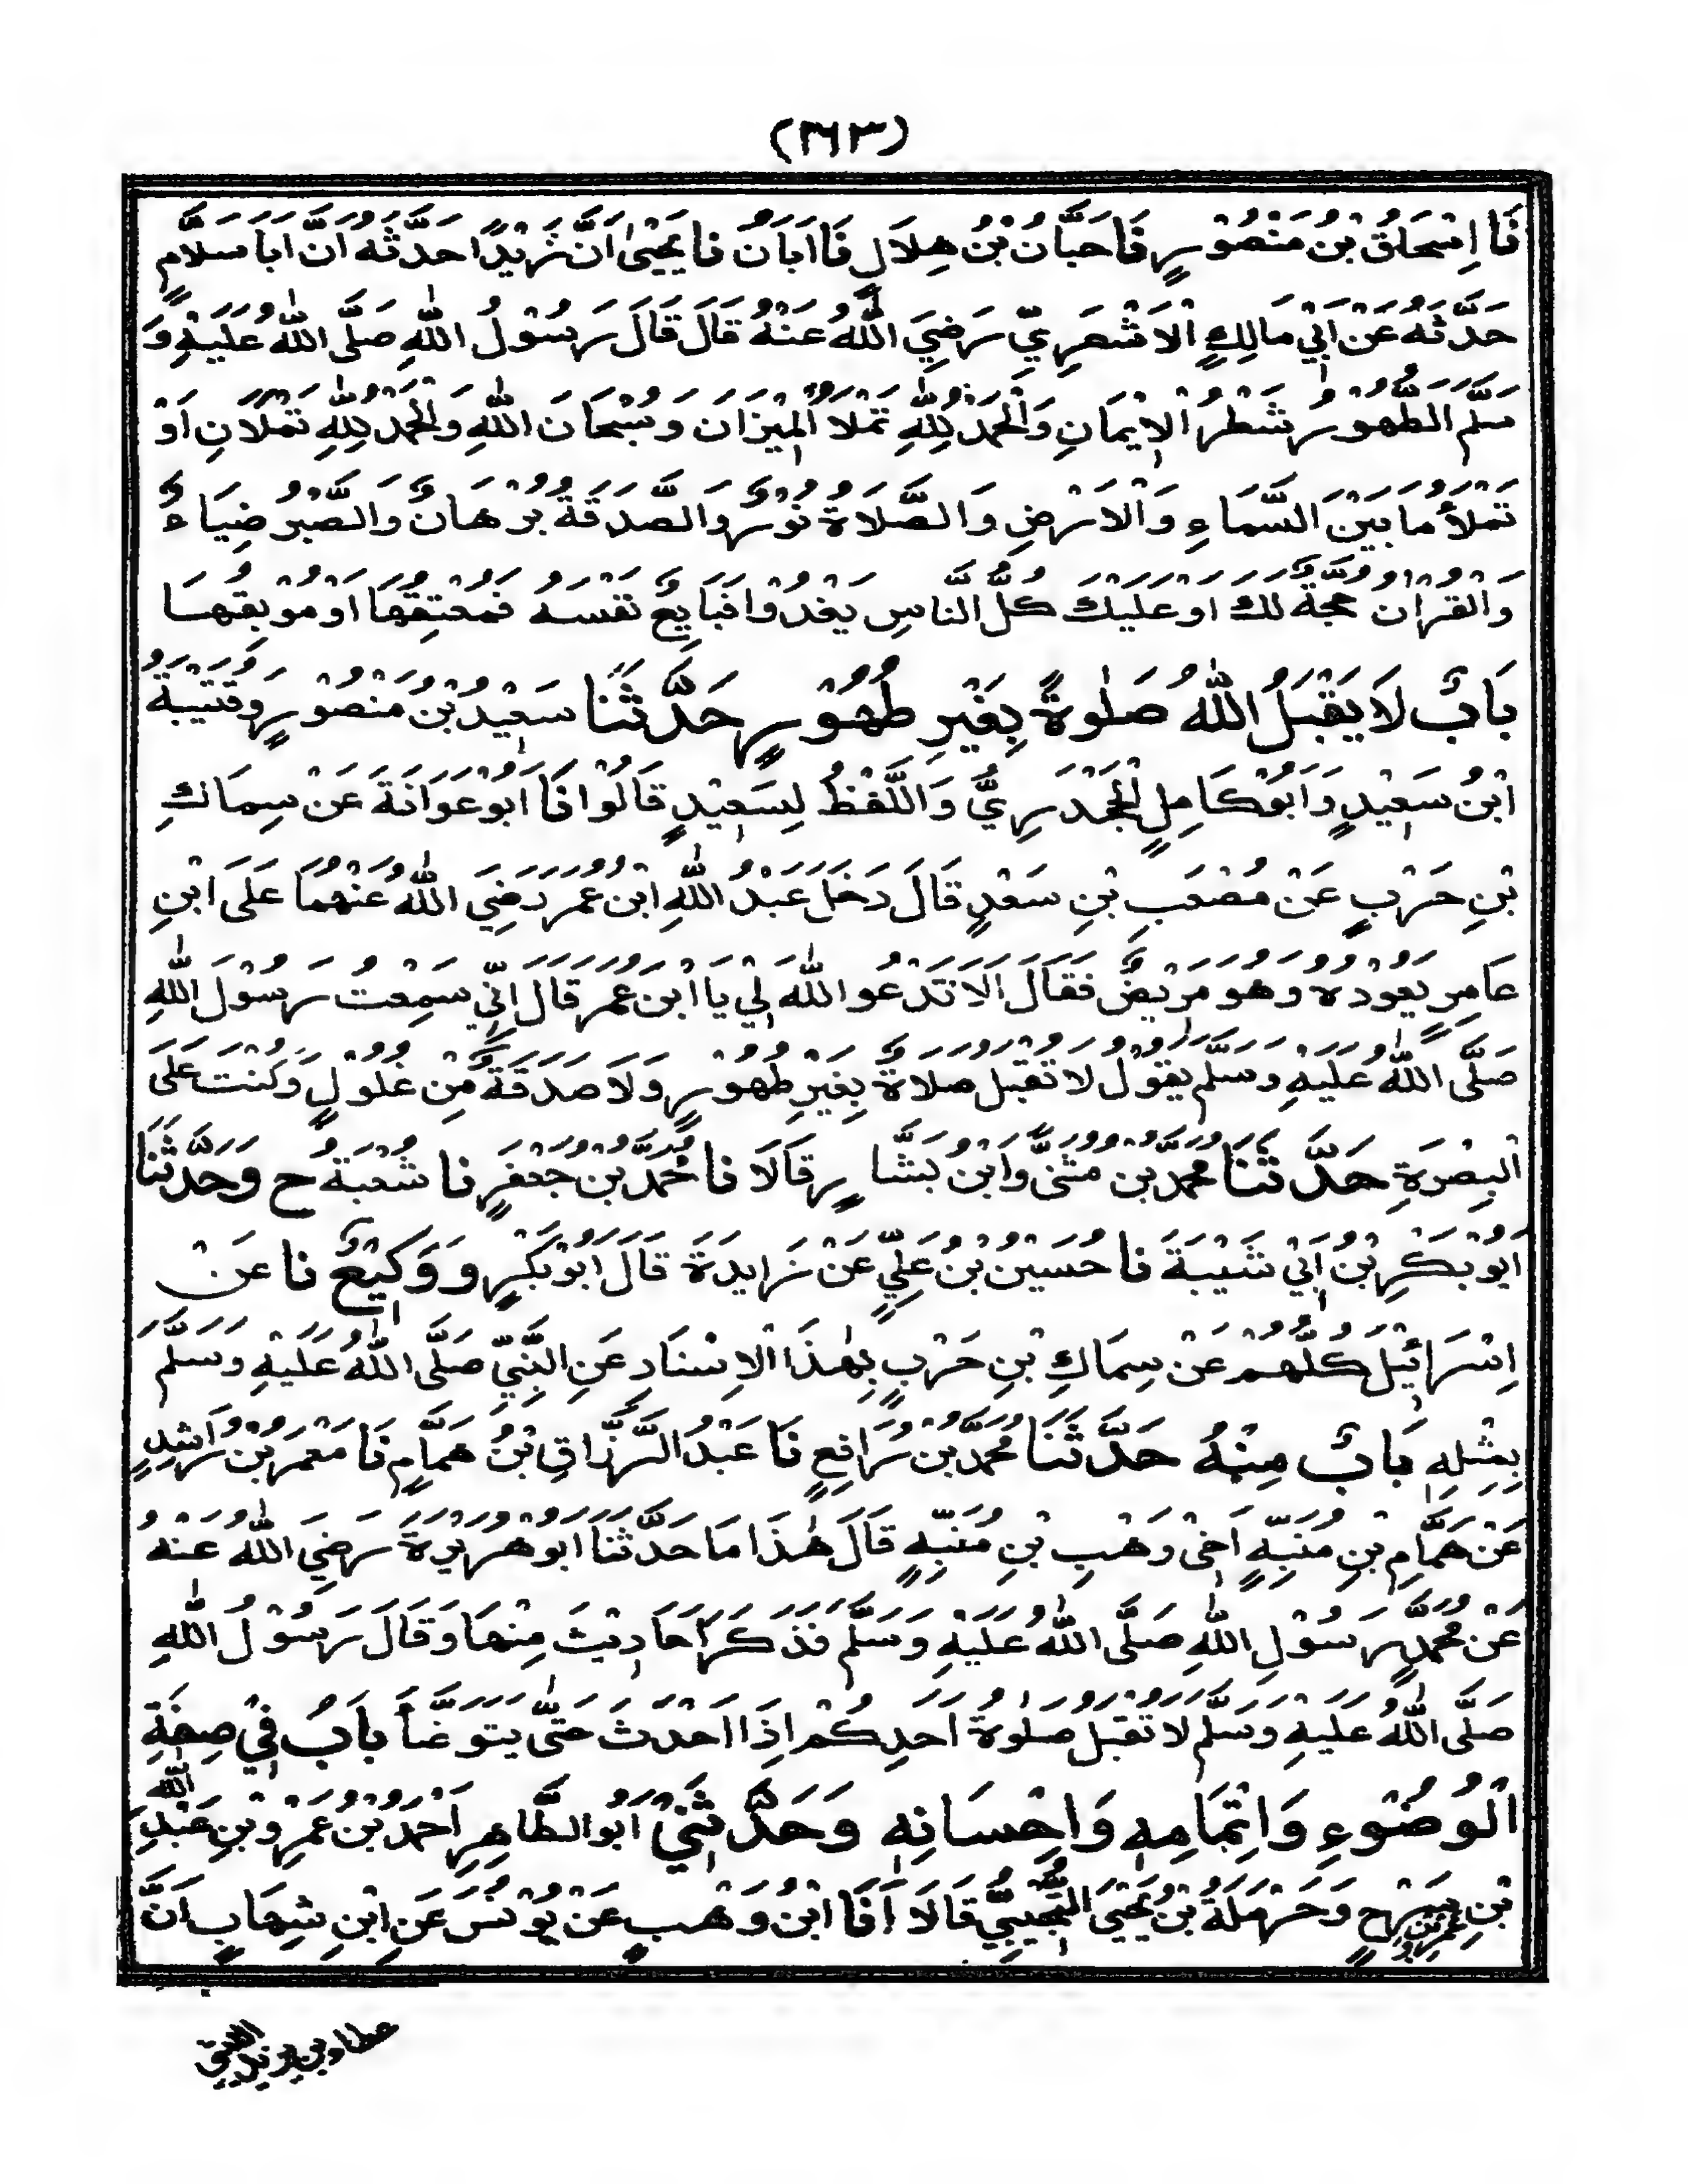 (٢٦٣)
نَا اِسْحَاقُ بْنُ مَنْصُوْرٍ نَا حَبَّانُ بْنُ هِلَالٍ نَا اَبَانُ نَا يَحْيٰى اَنَّ زَيْدًا حَدَّثَهُ اَنَّ اَبَا سَلَّامٍ
حَدَّثَهُ عَنْ اَبِيْ مَالِكٍ الْاَشْعَرِيِّ رَضِيَ اللّٰهُ عَنْهُ قَالَ قَالَ رَسُوْلُ اللّٰهِ صَلَّى اللّٰهُ عَلَيْهِ وَ
سَلَّمَ الطُّهُوْرُ شَطْرُ الْاِيْمَانِ وَالْحَمْدُ لِلّٰهِ تَمْلَأُ الْمِيْزَانَ وَسُبْحَانَ اللّٰهِ وَالْحَمْدُ لِلّٰهِ تَمْلَاٰنِ اَوْ
تَمْلَأُ مَا بَيْنَ السَّمَاءِ وَالْاَرْضِ وَالصَّلَاةُ نُوْرٌ وَالصَّدَقَةُ بُرْهَانٌ وَالصَّبْرُ ضِيَاءٌ
وَالْقُرْاٰنُ حُجَّةٌ لَكَ اَوْ عَلَيْكَ كُلُّ النَّاسِ يَغْدُوْا فَبَايِعٌ نَفْسَهُ فَمُعْتِقُهَا اَوْ مُوْبِقُهَا
بَابٌ لَا يَقْبَلُ اللّٰهُ صَلٰوةً بِغَيْرِ طُهُوْرٍ حَدَّثَنَا سَعِيْدُ بْنُ مَنْصُوْرٍ وَقُتَيْبَةُ
ابْنُ سَعِيْدٍ وَاَبُوْ كَامِلٍ الْجَحْدَرِيُّ وَاللَّفْظُ لِسَعِيْدٍ قَالُوْا نَا اَبُوْ عَوَانَةَ عَنْ سِمَاكِ
بْنِ حَرْبٍ عَنْ مُصْعَبِ بْنِ سَعْدٍ قَالَ دَخَلَ عَبْدُ اللّٰهِ ابْنُ عُمَرَ رَضِيَ اللّٰهُ عَنْهُمَا عَلَى ابْنِ
عَامِرٍ يَعُوْدُهُ وَهُوَ مَرِيْضٌ فَقَالَ اَلَا تَدْعُو اللّٰهَ لِيْ يَا ابْنَ عُمَرَ قَالَ اِنِّيْ سَمِعْتُ رَسُوْلَ اللّٰهِ
صَلَّى اللّٰهُ عَلَيْهِ وَسَلَّمَ يَقُوْلُ لَا تُقْبَلُ صَلَاةٌ بِغَيْرِ طُهُوْرٍ وَلَا صَدَقَةٌ مِّنْ غُلُوْلٍ وَكُنْتَ عَلَى
الْبِصْرَةِ حَدَّثَنَا مُحَمَّدُ بْنُ مُثَنّٰى وَابْنُ بَشَّارٍ قَالَا نَا مُحَمَّدُ بْنُ جَعْفَرٍ نَا شُعْبَةُ ح وَحَدَّثَنَا
اَبُوْ بَكْرِ بْنُ اَبِيْ شَيْبَةَ نَا حُسَيْنُ بْنُ عَلِيٍّ عَنْ زَايِدَةَ قَالَ اَبُوْ بَكْرٍ وَ وَكِيْعٌ نَا عَنْ
اِسْرَائِيْلَ كُلُّهُمْ عَنْ سِمَاكِ بْنِ حَرْبٍ بِهٰذَا الْاِسْنَادِ عَنِ النَّبِيِّ صَلَّى اللّٰهُ عَلَيْهِ وَسَلَّمَ
بِمِثْلِهٖ بَابٌ مِنْهُ حَدَّثَنَا مُحَمَّدُ بْنُ رَافِعٍ نَا عَبْدُ الرَّزَّاقِ بْنُ هَمَّامٍ نَا مَعْمَرُ بْنُ رَاشِدٍ
عَنْ هَمَّامِ بْنِ مُنَبِّهٍ اَخِيْ وَهْبِ بْنِ مُنَبِّهٍ قَالَ هٰذَا مَا حَدَّثَنَا اَبُوْ هُرَيْرَةَ رَضِيَ اللّٰهُ عَنْهُ
عَنْ مُحَمَّدٍ رَسُوْلِ اللّٰهِ صَلَّى اللّٰهُ عَلَيْهِ وَسَلَّمَ فَذَكَرَ اَحَادِيْثَ مِنْهَا وَقَالَ رَسُوْلُ اللّٰهِ
صَلَّى اللّٰهُ عَلَيْهِ وَسَلَّمَ لَا تُقْبَلُ صَلٰوةُ اَحَدِكُمْ اِذَا اَحْدَثَ حَتّٰى يَتَوَضَّأَ بَابٌ فِيْ صِفَةِ
الْوُضُوْءِ وَاِتْمَامِهٖ وَاِحْسَانِهٖ وَحَدَّثَنِيْ اَبُو الطَّاهِرِ اَحْمَدُ بْنُ عَمْرِو بْنِ عَبْدِ اللّٰهِ
بْنِ عَمْرِو بْنِ سَرْحٍ وَحَرْمَلَةُ بْنُ يَحْيَى التُّجِيْبِيُّ قَالَا اَنَا ابْنُ وَهْبٍ عَنْ يُوْنُسَ عَنِ ابْنِ شِهَابٍ اَنَّ
عطاء بن يزيد الليثى